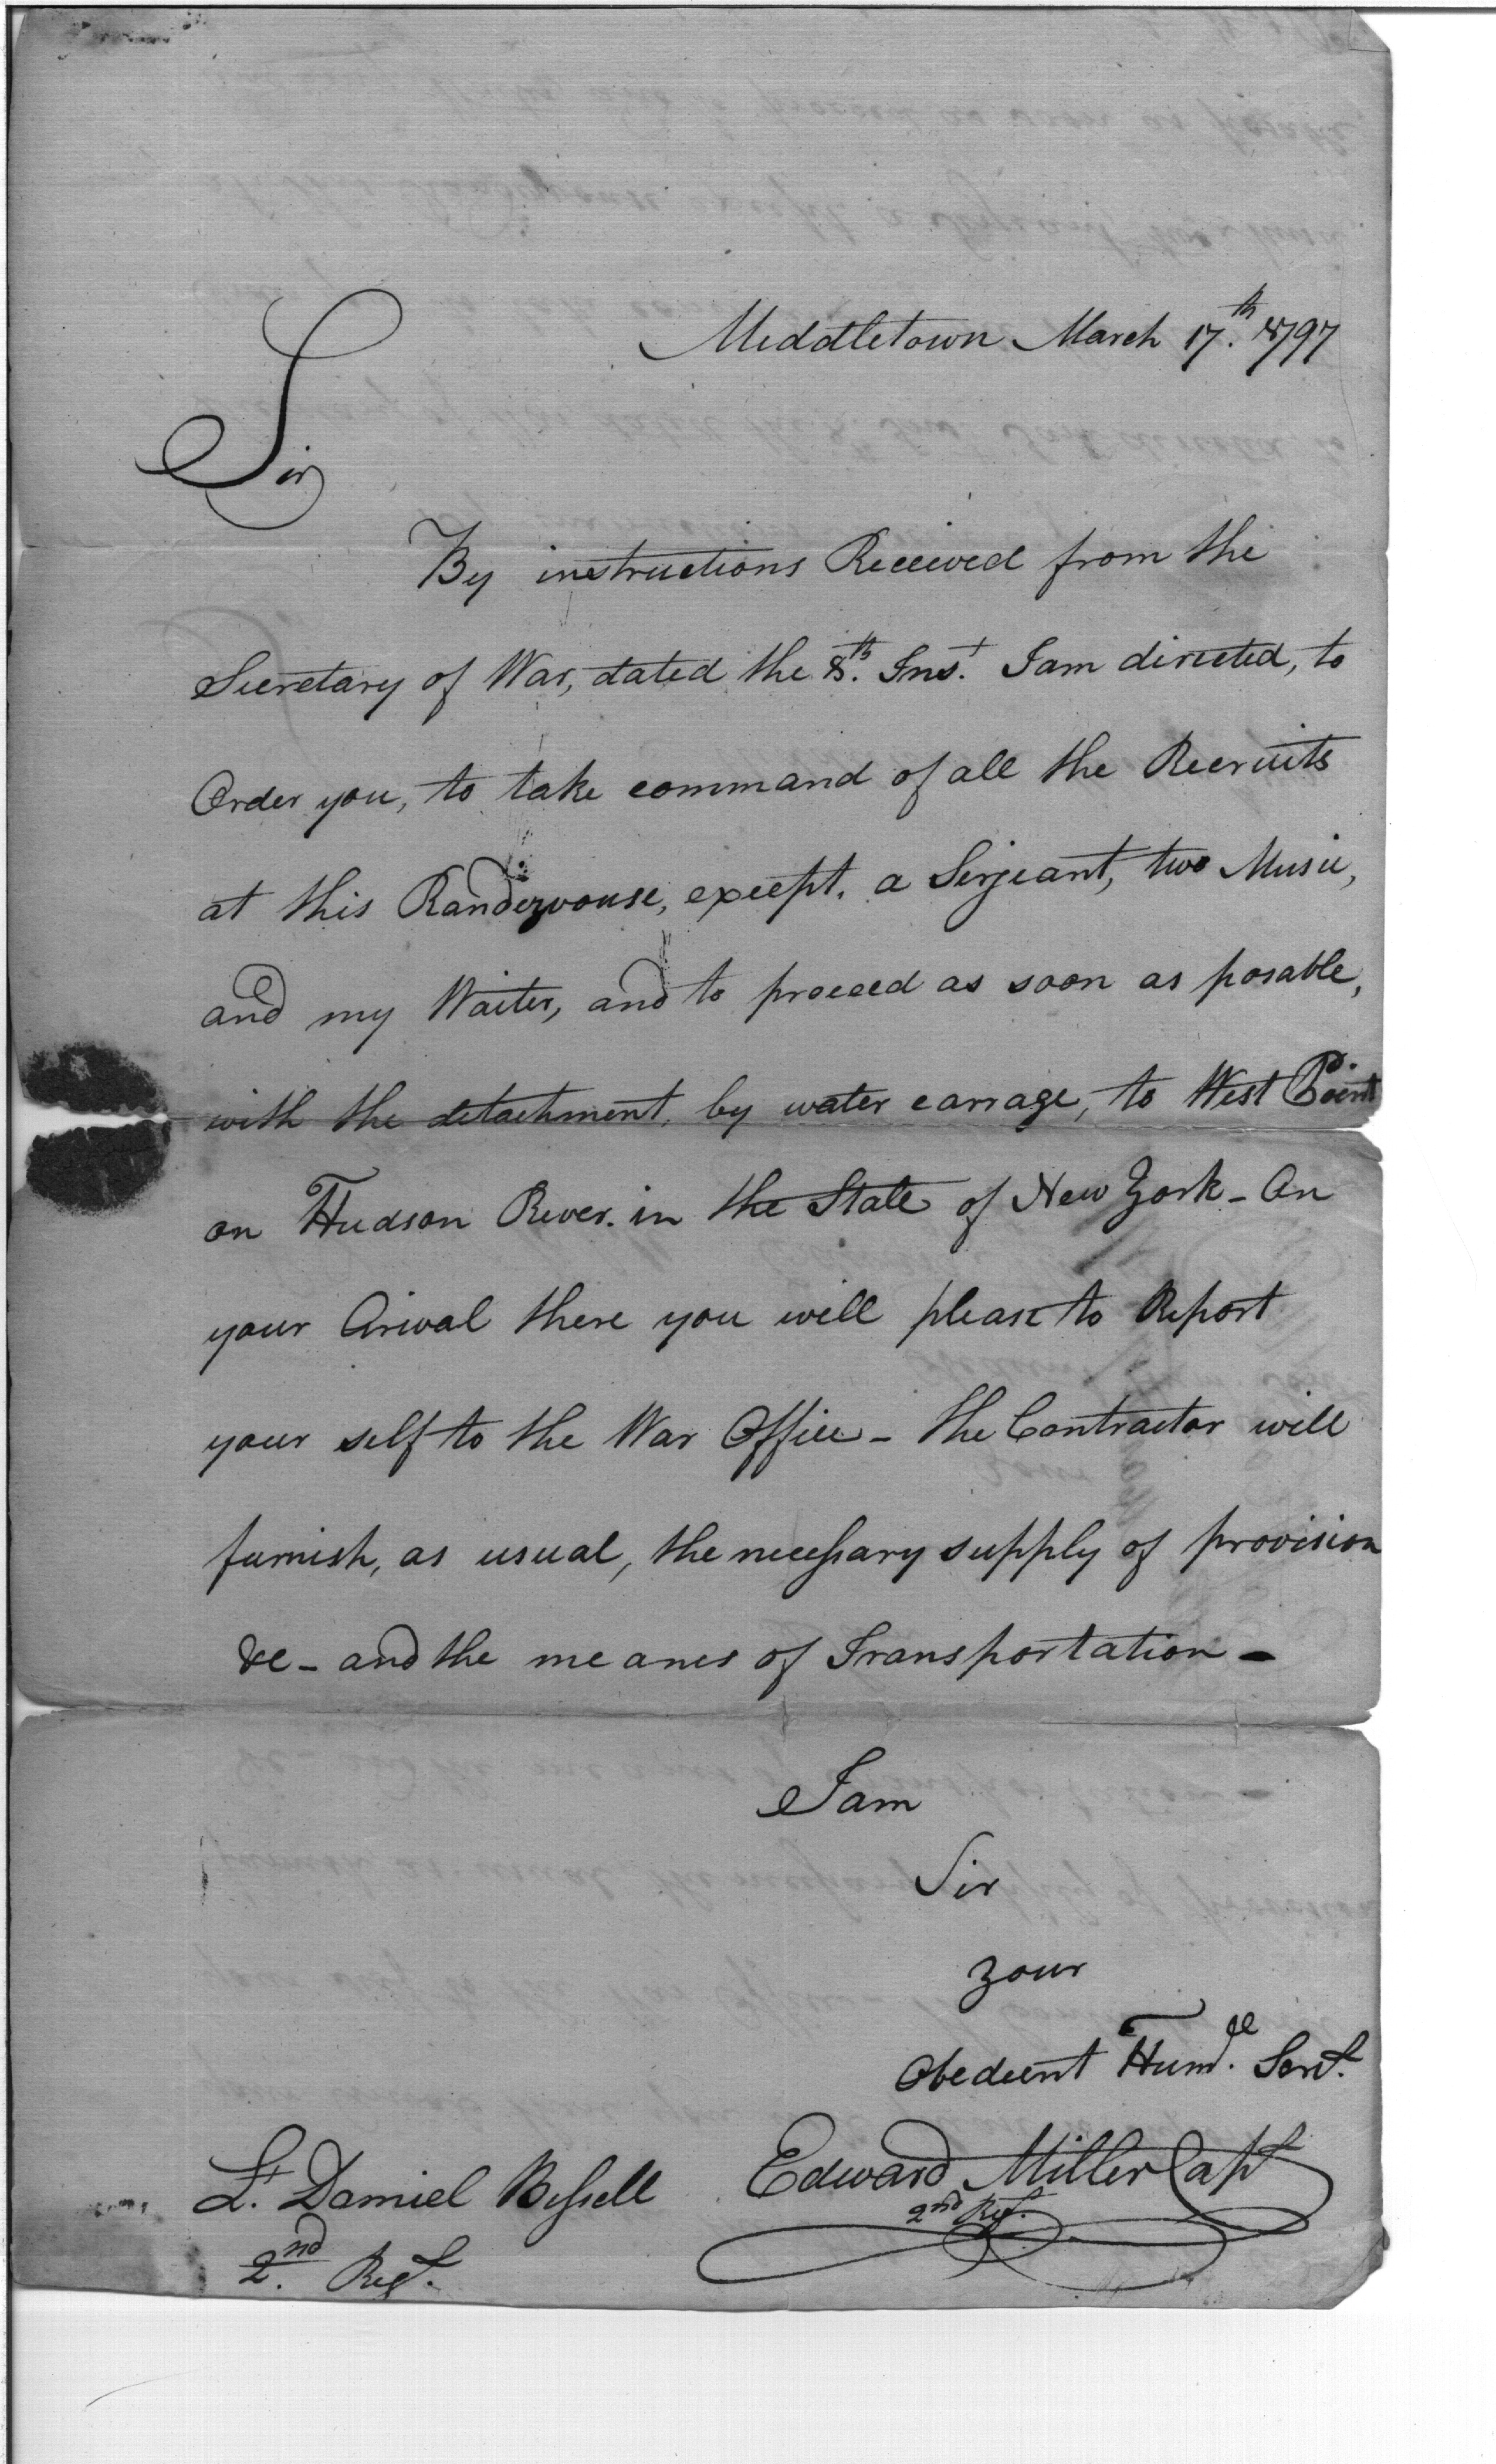 Middletown March 17th. 1797
Sir
By instructions Received from the
Secretary of War, dated the 8th. Inst. I am directed, to
Order you, to take command of all the Recruits
at this Randezvouse, except. a Serjeant, two Music,
and my Waiter, and to proceed as soon as posable,
with the detachment, by water carrage, to West Point
on Hudson River. in the State of New York - On
your Arival there you will please to Report
your self to the War Office - the Contractor will
furnish, as usual, the necessary supply of provision
&c - and the meanes of Transportation -
I am
Sir
your
Obedient Humble. Servt.
Edward Miller Capt
2nd Regt.
Lt. Daniel Bissell
2nd. Regt.